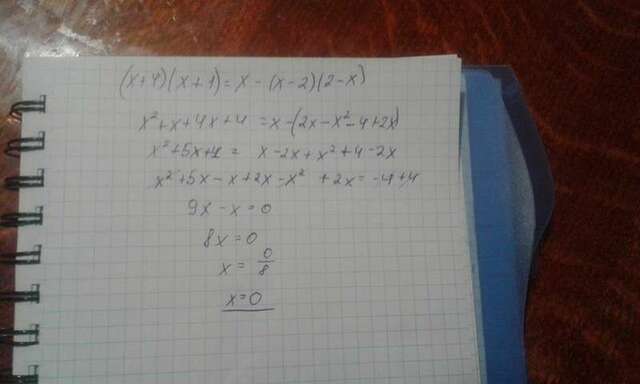 (x+4)(x+1)=x-(x-2)(2-x)
x²+x+4x+4=x-(2x-x²-4+2x)
x²+5x+4=x-2x+x²+4-2x
x²+5x-x+2x-x²+2x=-4+4
9x-x=0
8x=0
x=0/8
x=0